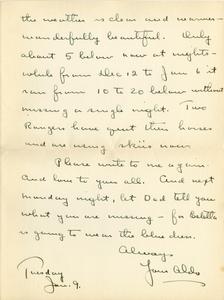 the weather is clear and warmer -
wonderfully beautiful. Only
about 5 below now at nights -
while from Dec 12 to Jan 6 it
ran from 10 to 20 below without
missing a single night. Two
Rangers have quit their horses
and are using skiis now.
Please write to me again.
And love to you all. And next
Monday night, let Dad tell you
what you are missing - for
is going to wear the blue dress.
Always
Your Aldo
Tuesday
Jan. 9.